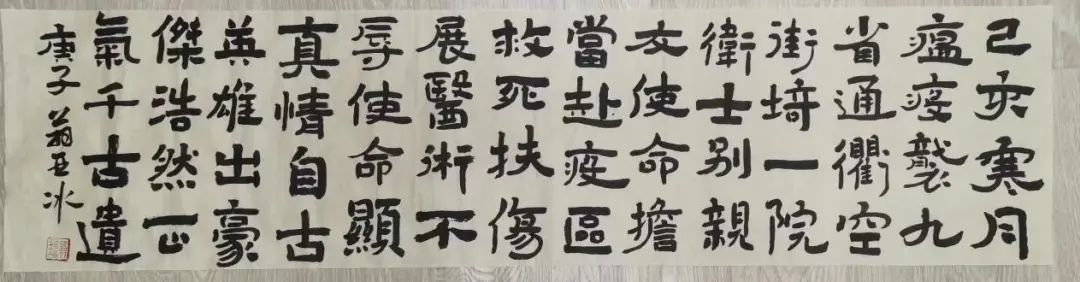 己亥寒月
瘟疫襲九
省通衢空
街埼一院
衛士别親
友使命擔
當赴疫區
救死扶傷
展醫術不
辱使命顯
真情自古
英雄出豪
傑浩然正
氣千古遺
庚子翁亚冰